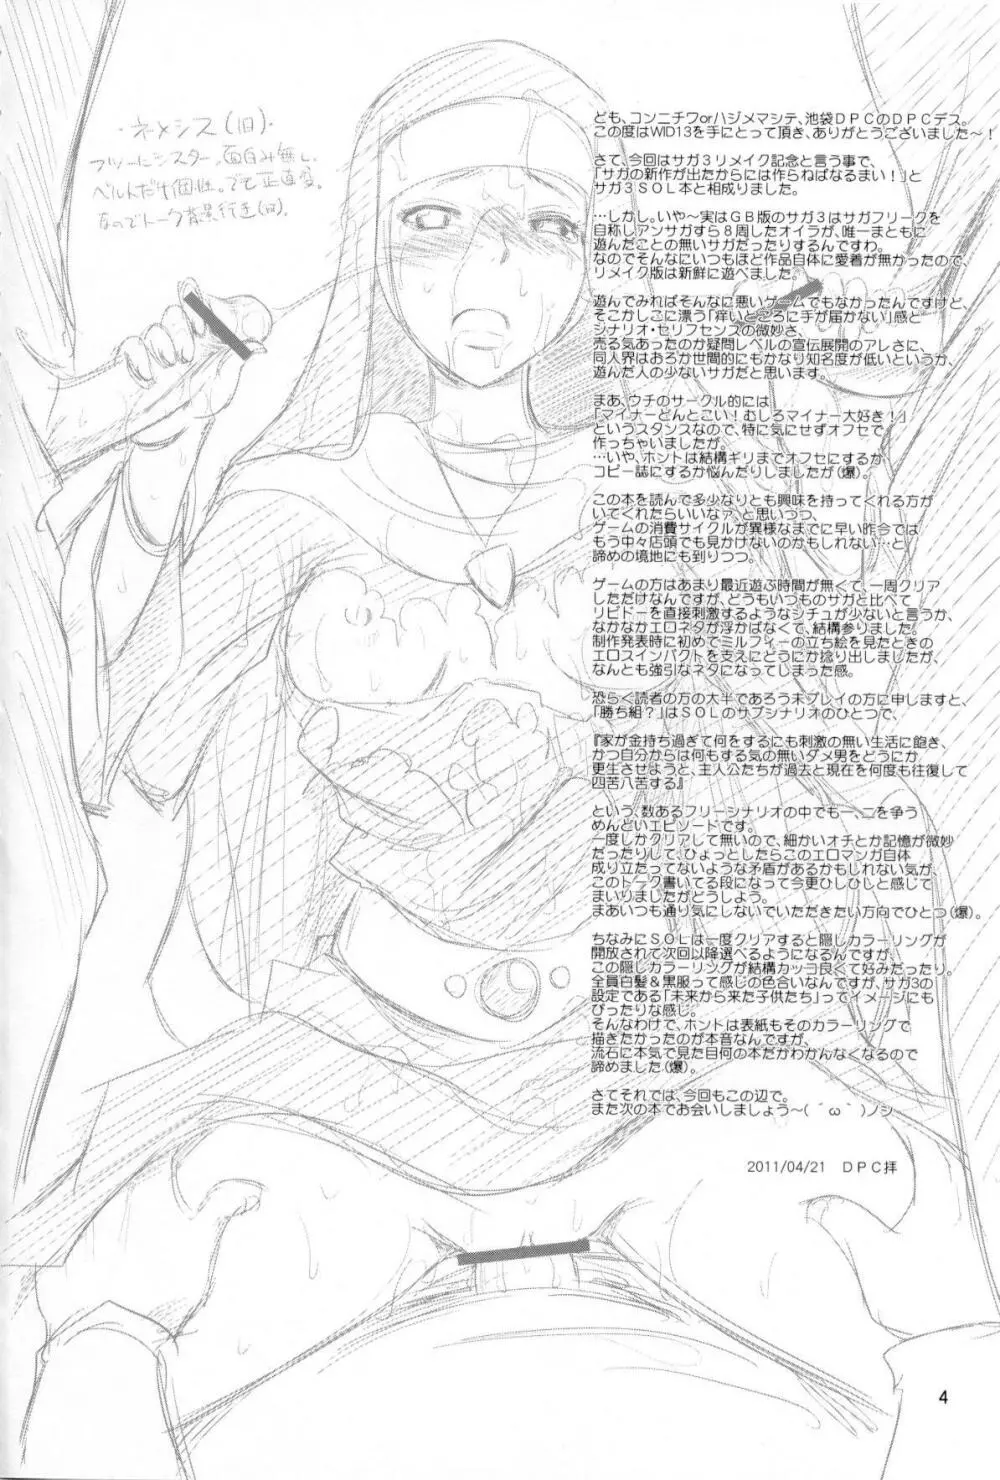 ・ネメシス(旧)・
フツーにシスター。面白み無し。
ベルトだけ個性。でも正直変。
なのでトーク背景行き(笑)。
ども、コンニチワorハジメマシテ、池袋DPCのDPCデス。
この度はWID13を手にとって頂き、ありがとうございました～！
さて、今回はサガ3リメイク記念と言う事で、
「サガの新作が出たからには作らねばなるまい！」と
サガ3SOL本と相成りました。
…しかし。いや～実はGB版のサガ3はサガフリークを
自称しアンサガすら8周したオイラが、唯一まともに
遊んだことの無いサガだったりするんですわ。
なのでそんなにいつもほど作品自体に愛着が無かったので、
リメイク版は新鮮に遊べました。
遊んでみればそんなに悪いゲームでもなかったんですけど、
そこかしこに漂う「痒いところに手が届かない」感と
シナリオ・セリフセンスの微妙さ、
売る気あったのか疑問レベルの宣伝展開のアレさに、
同人界はおろか世間的にもかなり知名度が低いというか、
遊んだ人の少ないサガだと思います。
まあ、ウチのサークル的には
「マイナーどんとこい！むしろマイナー大好き！」
というスタンスなので、特に気にせずオフセで
作っちゃいましたが。
…いや、ホントは結構ギリまでオフセにするか
コピー誌にするか悩んだりしましたが(爆)。
この本を読んで多少なりとも興味を持ってくれる方が
いてくれたらいいなァ、と思いつつ、
ゲームの消費サイクルが異様なまでに早い昨今では
もう中々店頭でも見かけないのかもしれない…と
諦めの境地にも到りつつ。
ゲームの方はあまり最近遊ぶ時間が無くて、一周クリア
しただけなんですが、どうもいつものサガと比べて
リビドーを直接刺激するようなシチュが少ないと言うか、
なかなかエロネタが浮かばなくて、結構参りました。
制作発表時に初めてミルフィーの立ち絵を見たときの
エロスインパクトを支えにどうにか捻り出しましたが、
なんとも強引なネタになってしまった感。
恐らく読者の方の大半であろう未プレイの方に申しますと、
「勝ち組？」はSOLのサブシナリオのひとつで、
『家が金持ち過ぎて何をするにも刺激の無い生活に飽き、
かつ自分からは何もする気の無いダメ男をどうにか
更生させようと、主人公たちが過去と現在を何度も往復して
四苦八苦する』
という、数あるフリーシナリオの中でも一、二を争う
めんどいエピソードです。
一度しかクリアして無いので、細かいオチとか記憶が微妙
だったりして、ひょっとしたらこのエロマンガ自体
成り立たってないような矛盾があるかもしれない気が、
このトーク書いてる段になって今更ひしひしと感じて
まいりましたがどうしよう。
まあいつも通り気にしないでいただきたい方向でひとつ(爆)。
ちなみにSOLは一度クリアすると隠しカラーリングが
開放されて次回以降選べるようになるんですが、
この隠しカラーリングが結構カッコ良くて好みだったり。
全員白髪＆黒服って感じの色合いなんですが、サガ3の
設定である「未来から来た子供たち」ってイメージにも
ぴったりな感じ。
そんなわけで、ホントは表紙もそのカラーリングで
描きたかったのが本音なんですが、
流石に本気で見た目何の本だかわかんなくなるので
諦めました(爆)。
さてそれでは、今回もこの辺で。
また次の本でお会いしましょう～( ´ω｀)ノシ
2011/04/21　DPC拝
4